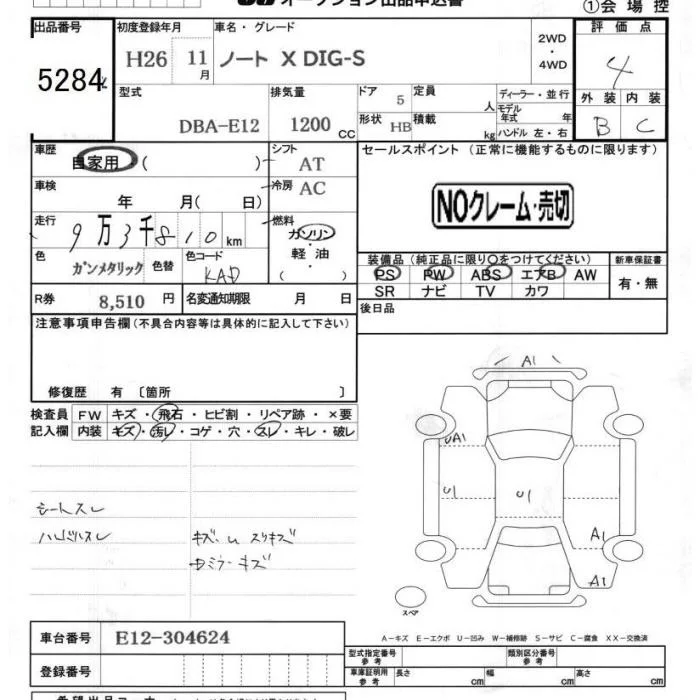 オークション出品申込書
①会場控
出品番号
5284
初度登録年月
H26 11月
車名・グレード
ノート X DIG-S
2WD
・
4WD
評価点
4
外装 内装
B C
型式
DBA-E12
排気量
1200 CC
ドア 5
定員 人
形状 HB
積載 kg
ディーラー・並行
モデル年式 年
ハンドル 左・右
車歴
自家用 ( )
シフト
AT
セールスポイント (正常に機能するものに限ります)
車検
年 月( 日)
冷房
AC
NOクレーム・売切
走行
9万3千810km
燃料
ガソリン
・
軽油
( )
色
ガンメタリック
色替
色コード
KAD
装備品 (純正品に限り○をつけてください)
PS PW ABS エアB AW
SR ナビ TV カワ
新車保証書
有・無
R券
8,510 円
名変通知期限 月 日
後日品
注意事項申告欄 (不具合内容等は具体的に記入して下さい)
修復歴 有 〔箇所 〕
検査員 FW キズ・飛石・ヒビ割・リペア跡・×要
記入欄 内装 キズ・汚レ・コゲ・穴・スレ・キレ・破レ
シートスレ
ハンドルスレ
キズ・U スリキズ
A1
UA1
U1
U1
A1
A1
スペア
車台番号
E12-304624
登録番号
A-キズ E-エクボ U-凹み W-補修跡 S-サビ C-腐食 XX-交換済
型式指定番号 参考
類別区分番号 参考
車庫証明用 参考
長さ cm 幅 cm 高さ cm
希望出品コーナー